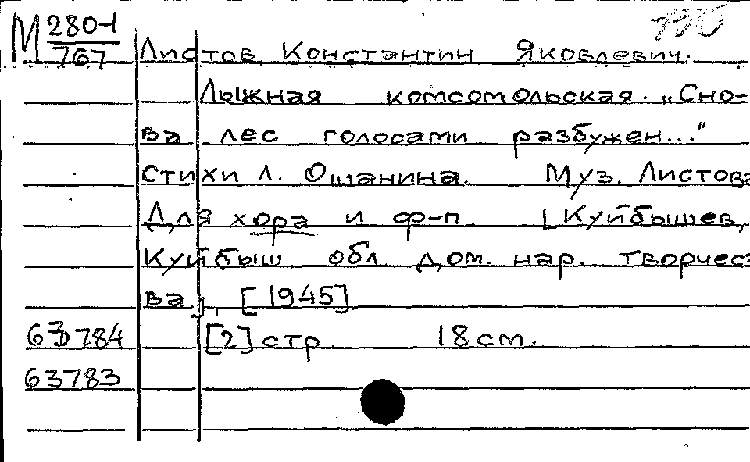 М 280-1
767
Листов, Константин Яковлевич.
Лыжная комсомольская. „Сно-
ва лес голосами разбужен..."
Стихи Л. Ошанина. Муз. Листова
Для хора и ф-п. [Куйбышев,
Куйбыш. обл. дом. нар. творчест
ва], [1945]
63784 [2] стр. 18 см.
63783